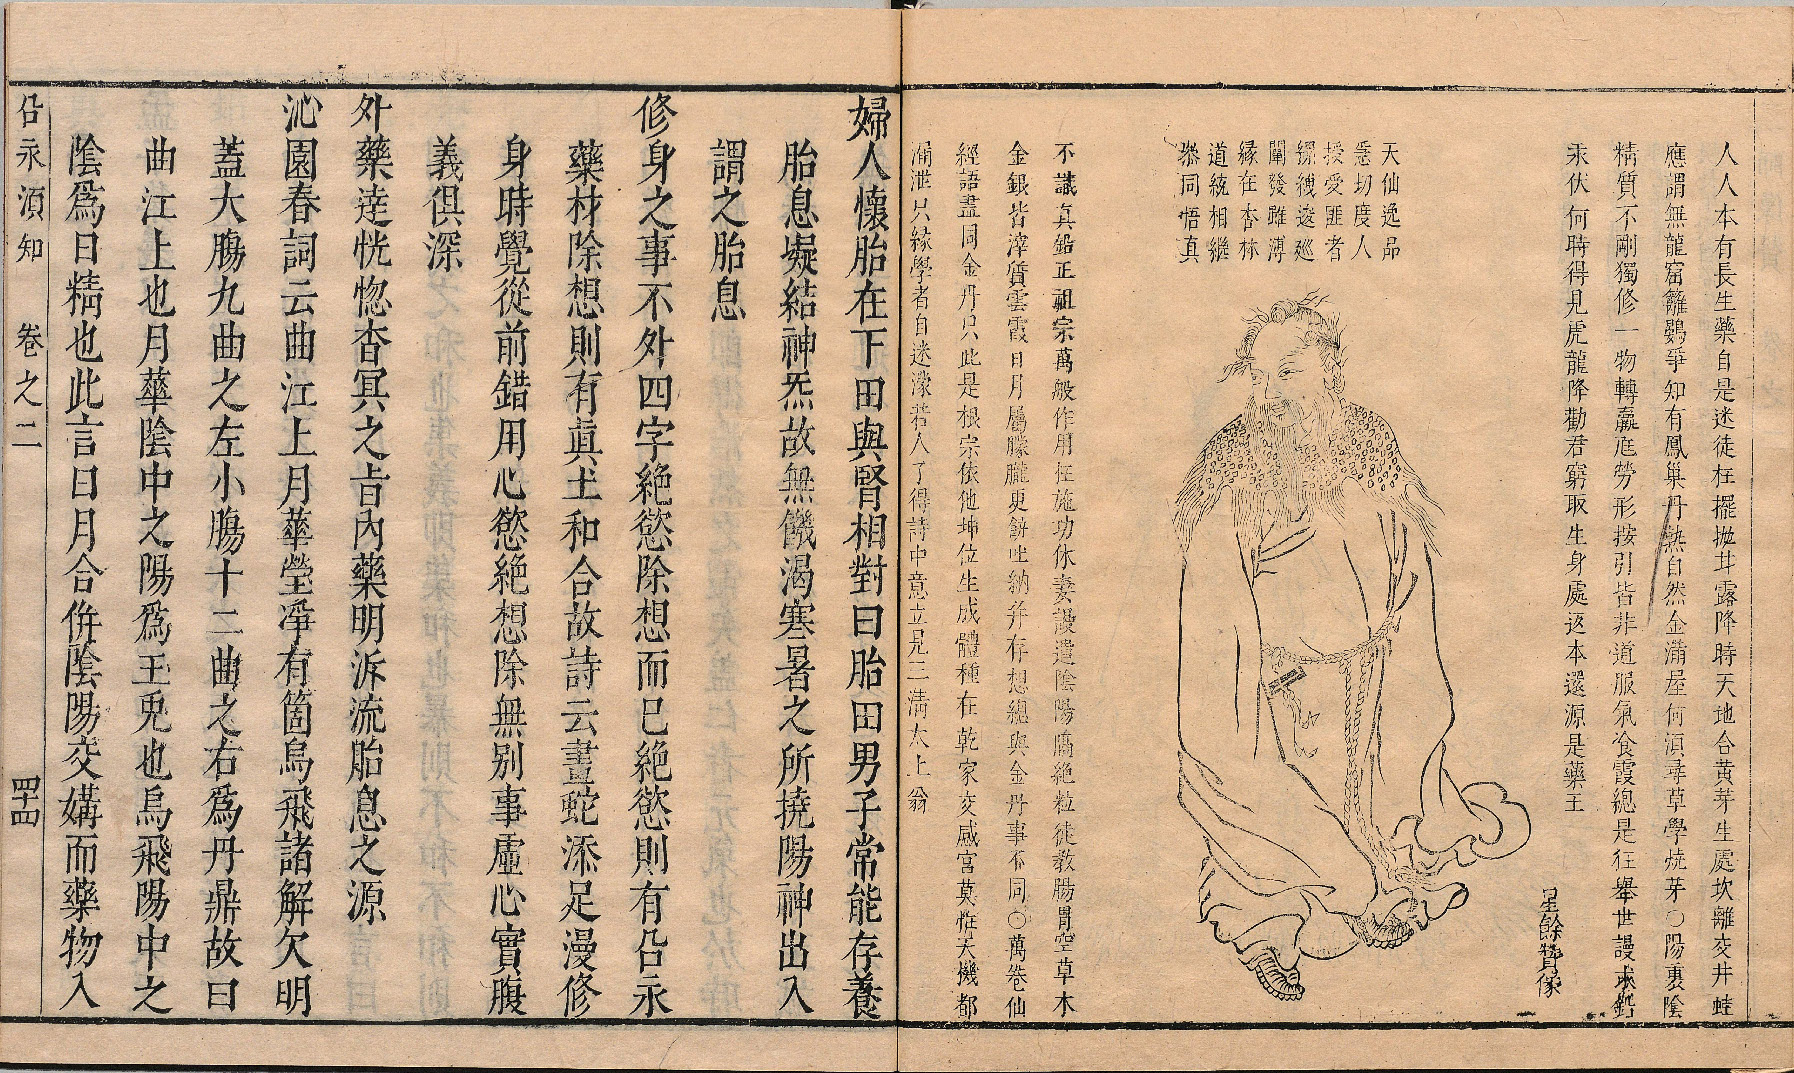 人人本有長生藥自是迷徒枉擺拋甘露降時天地合黃芽生處坎離交井蛙
應謂無龍窟籬鷃爭知有鳳巢丹熟自然金滿屋何須尋草學燒芽○陽裏陰
精質不剛獨修一物轉羸尫勞形按引皆非道服氣飡霞總是狂舉世謾求鈆
汞伏何時得見虎龍降勸君窮取生身處返本還源是藥王
星餘贊像
天仙逸品
急切度人
授受匪者
縲絏逡巡
闡發雖溥
緣在杏林
道統相繼
叅同悟真
不識真鉛正祖宗萬般作用枉施功休妻謾遣陰陽隔絶粒徒教腸胃空草木
金銀皆滓質雲霞日月屬朦朧更饒吐納并存想總與金丹事不同○萬卷仙
經語盡同金丹只此是根宗依他坤位生成體種在乾家交感宮莫怪天機都
漏泄只緣學者自迷濛若人了得詩中意立見三清太上翁
婦人懷胎在下田與腎相對曰胎田男子常能存養
胎息凝結神炁故無饑渴寒暑之所撓陽神出入
謂之胎息
修身之事不外四字絶慾除想而已絶慾則有㕣永
藥材除想則有真土和合故詩云畫蛇添足漫修
身時覺從前錯用心慾絶想除無别事虛心實腹
義俱深
外藥達恍惚杳冥之旨內藥明泝流胎息之源
沁園春詞云曲江上月華瑩淨有箇烏飛諸解欠明
蓋大膓九曲之左小膓十二曲之右爲丹鼎故曰
曲江上也月華陰中之陽爲玉兎也烏飛陽中之
陰爲日精也此言日月合併陰陽交媾而藥物入
㕣永湏知 卷之二 四十四